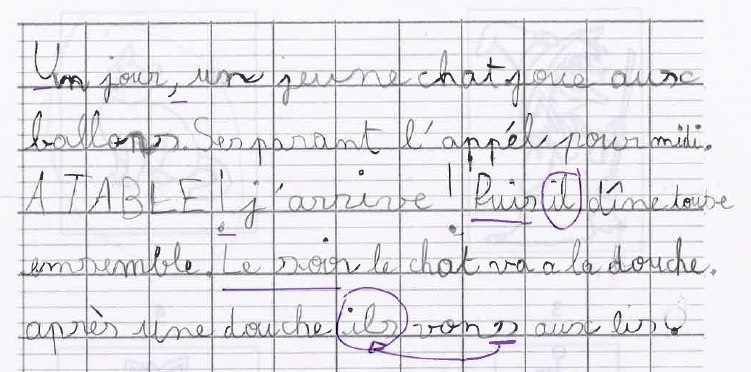 Un jour, un jeune chat joue aux
ballons. Ses parant l'appél pour midi.
A TABLE! j'arrive! Puis il dîne touse
ensemble. Le soir le chat va a la douche.
après une douche ils vons aux lis.